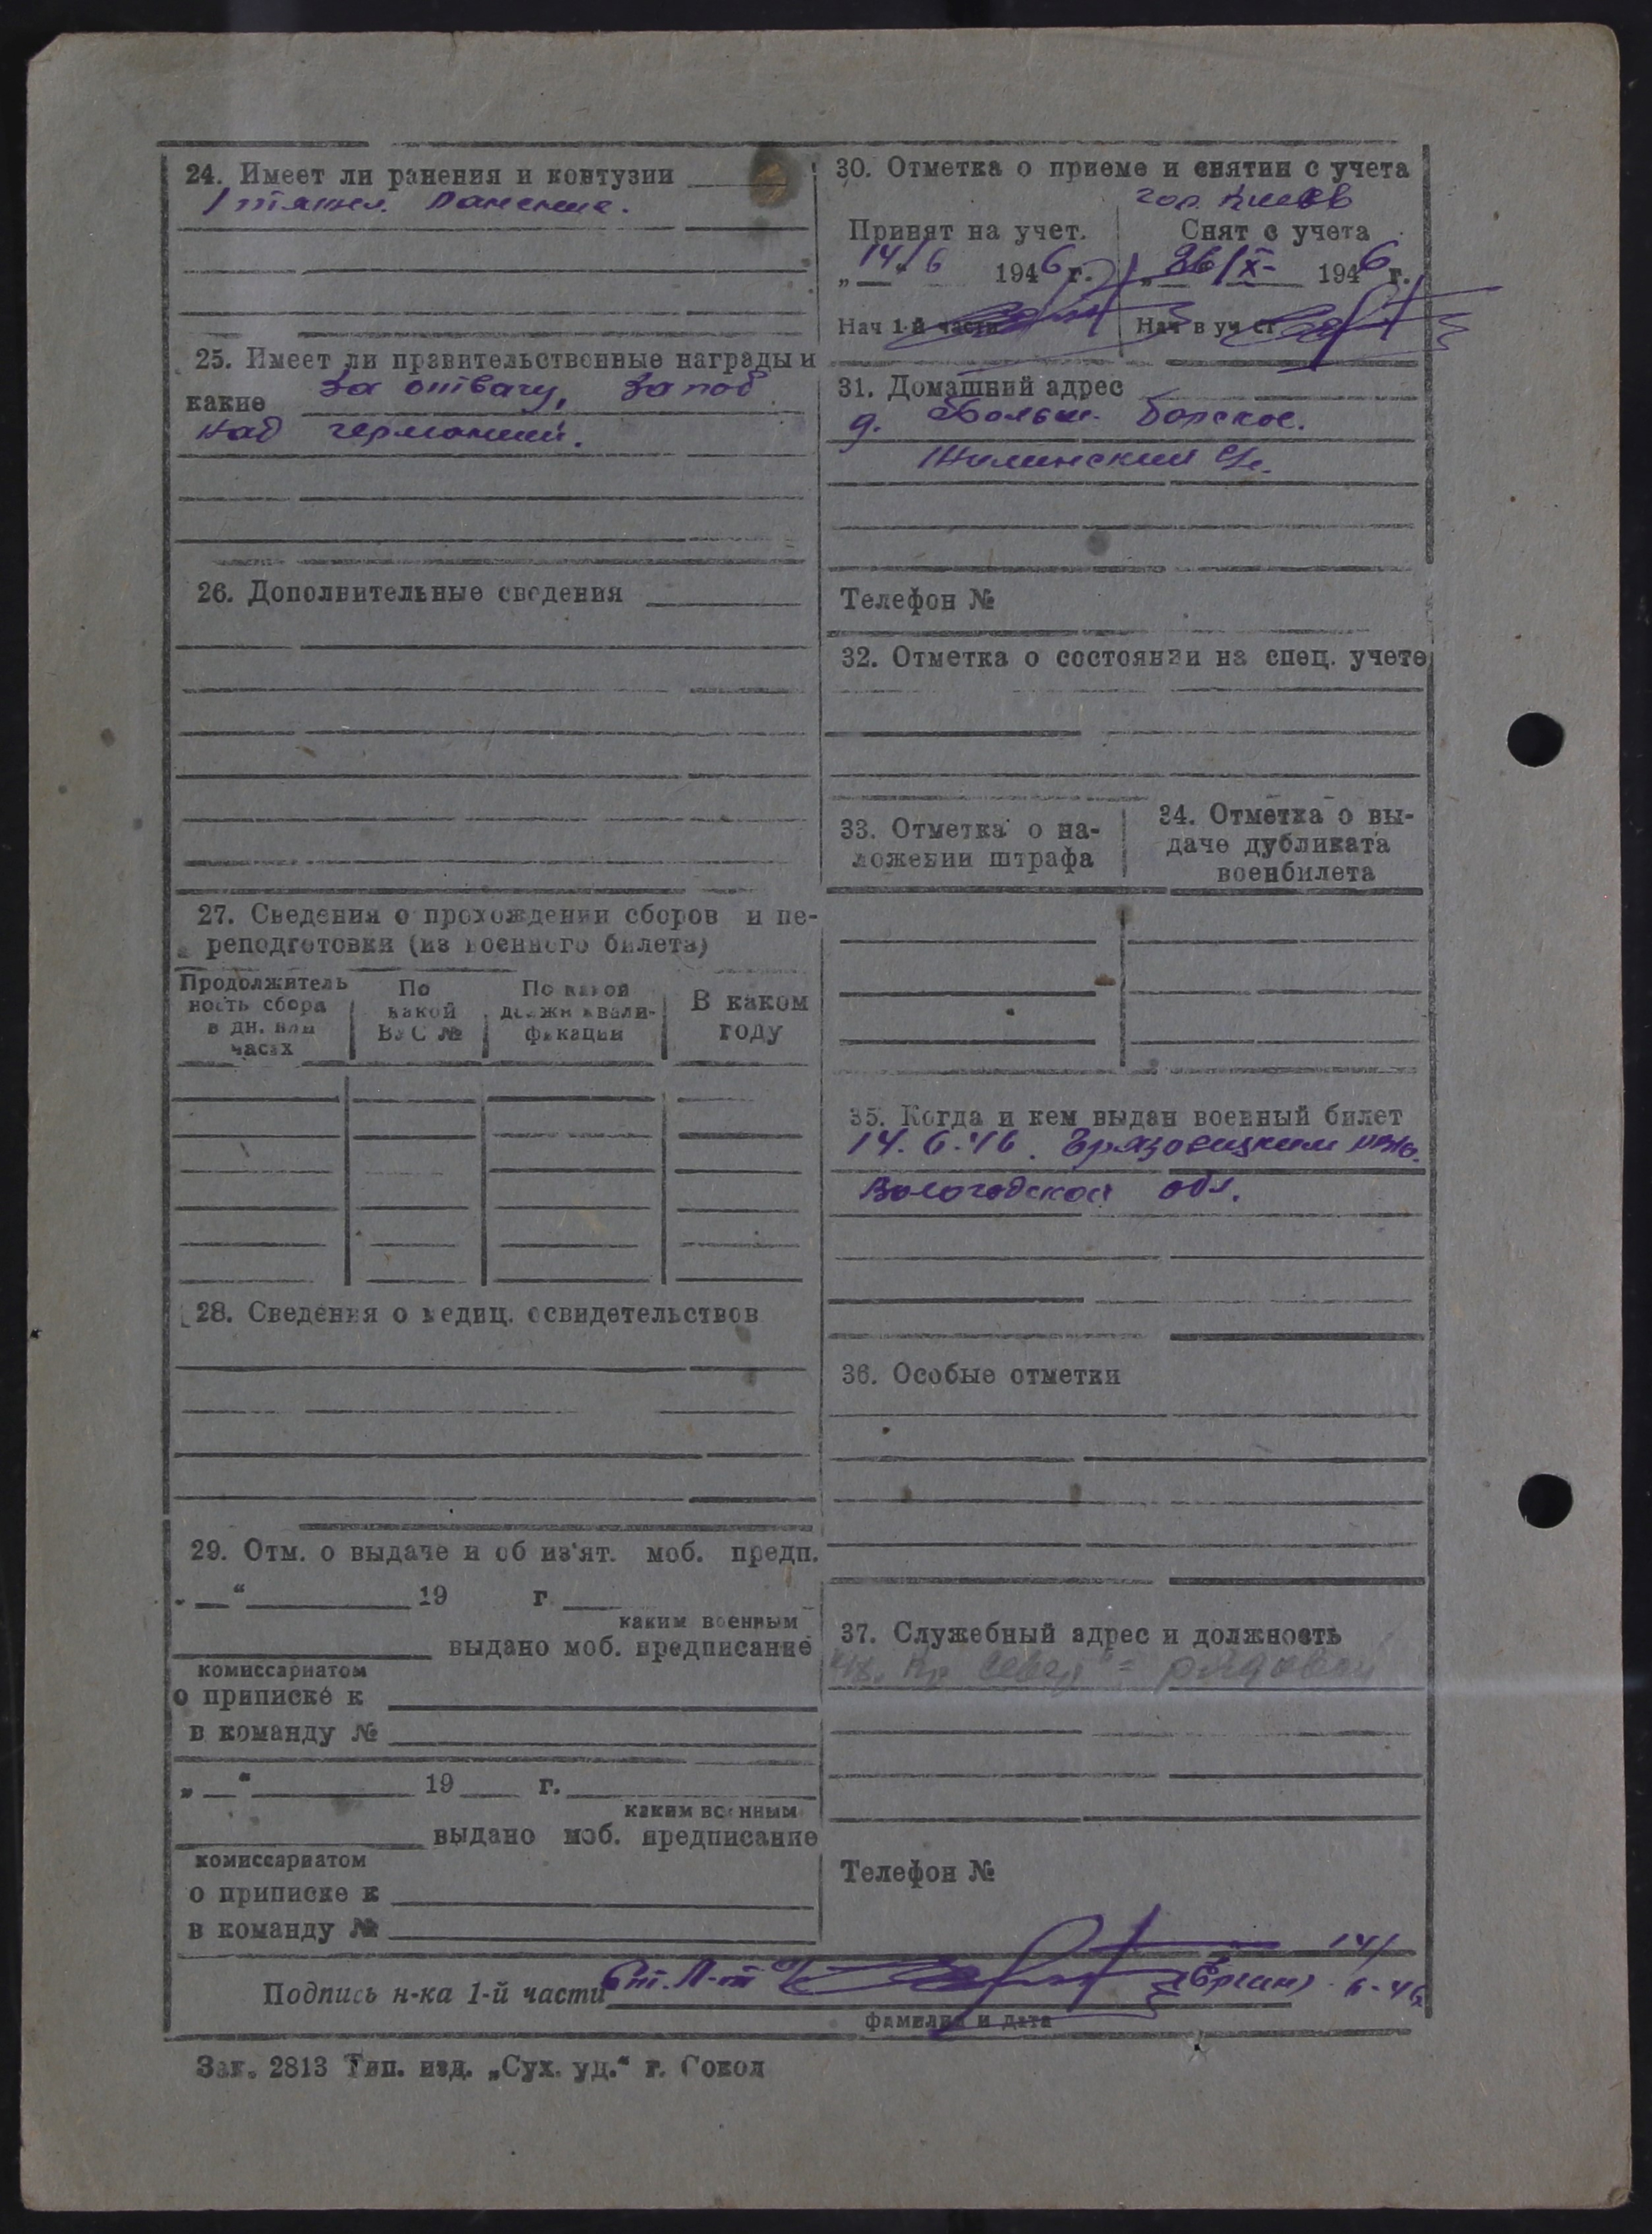 24. Имеет ли ранения и контузии
1 тяжел. Ранение.
25. Имеет ли правительственные награды и
какие За отвагу, За поб.
над германией.
26. Дополнительные сведения
27. Сведения о прохождении сборов и пе-
реподготовки (из военного билета)
Продолжитель
ность сбора
в дн. или
часах
По
какой
ВУС №
По какой
должн квали-
фикации
В каком
году
28. Сведения о медиц. освидетельствов
29. Отм. о выдаче и об из'ят. моб. предп.
„ “ 19 г
каким военным
выдано моб. предписание
комиссариатом
о приписке к
в команду №
„ “ 19 г.
каким военным
выдано моб. предписание
комиссариатом
о приписке к
в команду №
30. Отметка о приеме и снятии с учета
гор. Киев
Принят на учет.
„14/6 1946 г.
Нач 1-й части
Снят с учета
„26/X- 1946 г.
Нач в уч ст
31. Домашний адрес
д. Больш. Борское.
Телефон №
32. Отметка о состоянии на спец. учете
33. Отметка о на-
ложении штрафа
34. Отметка о вы-
даче дубликата
военбилета
35. Когда и кем выдан военный билет
14.6.46. Грязовецким РВК.
Вологодской обл.
36. Особые отметки
37. Служебный адрес и должность
рядовой
Телефон №
Подпись н-ка 1-й части Ст. Л-т 14/
6-46
фамилия и дата
Зак. 2813 Тип. изд. „Сух. уд.“ г. Сокол